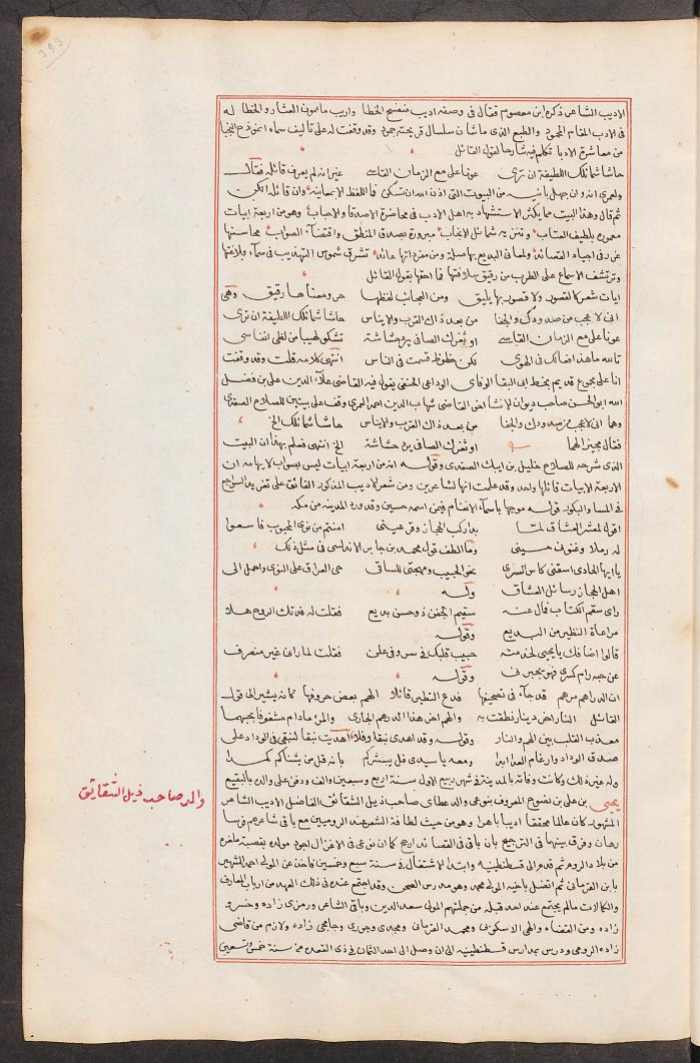 393
الاديب الشاعر ذكره ابن معصوم فقال فى وصفه اديب فسيح الخطا واريب مامون العثار والخطا له
فى الادب المقام المحمود والطبع الذى ماشان سلسال قريحته جمود وقد وقفت له على تاليف سماه انموذج النجبا
من معاشرة الادبا تكلم فيه شارحا لقول القائل
حاشا شمائلك اللطيفة ان ترى عونا على مع الزمان القاسى غير انه لم يعرف قائله فقال
ولعمرى انه وان جهل بانيه من البيوت التى اذن الله ان تسكن فاللفظ الا معانيه وان قائله
ثم قال وهذا البيت مما يكثر الاستشهاد به اهل الادب فى محاضرة الاصدقا والاحباب وهو من اربعة ابيات
معموره بلطيف العتاب وتنزيه شمائل الانجاب مبرورة بصدق المنطق واقتضاء الصواب محاسنها
غرر فى اجياد القصائد ولمعانى البديع بها صلة ومن مفرداتها عائد تشرق شموس التهذيب فى سماء بلاغتها
وترتشف الاسماع على الطرب من رقيق سلافتها فالحقها بقوله القائل
ابيات شعرك كالقصور ولا قصور بها يليق ومن العجائب لفظها حر ومعناها رقيق وهى
انى لاعجب من صدودك والجفا من بعد ذاك القرب والايناس حاشا شمائلك اللطيفة ان ترى
عونا على مع الزمان القاسى او ثغرك الصافى يرد حشاشة تشكو لهيبا من لظى انفاسى
تالله ما هذا فعالك فى الهوى لكن حظوظ قسمت فى الناس انتهى كلامه قلت وقد وقفت
انا على مجموع قديم بخط ابى البقا الوفاى الوداعى الحنفى يقول فيه القاضى علاء الدين على بن فضل
الله ابو الحسن صاحب ديوان الانشا اخى القاضى شهاب الدين احمد العمرى وقف على بيتين للصلاح الصفدى
وهما انى لاعجب من صدودك والجفا من بعد ذاك القرب والايناس حاشا شمائلك الخ
فقال مجيزا لهما او ثغرك الصافى يرد حشاشة الخ انتهى فعلم بهذا ان البيت
الذى شرحه للصلاح خليل بن ايبك الصفدى وقوله انه من اربعة ابيات ليس بصواب لايهامه ان
الاربعة الابيات قائلها واحد وقد علمت انها لشاعرين ومن شعر الاديب المذكور الفائق على تغريد السواجع
فى المسا والبكور قوله موجها باسماء الانغام فيمن اسمه حسين وقد ورد المدينة من مكه
اقول لمعشر العشاق لما بدا ركب الحجاز وقر عينى امنتم من نوى المحبوب فاسعوا
له رملا وغنوا فى حسينى وما الطف قول محمد بن جابر الاندلسى فى مثل ذلك
يا ايها الحادى اسقنى كاس السرى نحو الحبيب ومهجتى للساقى حى العراق على النوى واحمل الى
اهل الحجاز رسائل العشاق وله
راى سقم الكتاب فقال عنه سقيم الجفن ذو حسن بديع فقلت له فدتك الروح هلا
مراعاة النظير من البديع وقوله
قالوا اضافك يا يحيى لخدمته حبيب قلبك فى سر وفى علن فقلت لما رانى غير منصرف
عن حبه رام كسرى فهو يجبرنى وقوله
ان الدراهم مرهم قد جاء فى تصحيفها فدع النظير قائلا الهم بعض حروفها كانه يشير الى قول
القائل النار اخر دينار نطقت به والهم اخر هذا الدرهم الجارى والمرء مادام مشغوفا بحبهما
معذب القلب بين الهم والنار وقوله وقد اهدى نبقا وفلا اهديت نبقا لنبقى فى الوداد على
صدق الوداد وارغام العدا ابدا ومعه يا سيدى فل يبشركم بانه قل من يشناكم كمدا
وله غير ذلك وكانت وفاته بالمدينة فى شهر ربيع الاول سنة اربع وسبعين والف ودفن على والده بالبقيع
يحيى بن على بن نصوح المعروف بنوعى والد عطاى صاحب ذيل الشقائق الفاضل الاديب الشاعر
المشهور كان عالما محققا اديبا باهرا وهو من حيث لطافة الشعر عند الروميين مع باقى شاعرهم فرسا
رهان وفرق بينهما فى الترجيح بان باقى فى القصائد ارجح كما ان نوعى فى الاغزال اجود مولده بقصبة ملغره
من بلاد الروم ثم قدم الى قسطنطينيه وابتدا الاشتغال فى سنة سبع وخمسين فاخذ عن المولى احمد الشهير
بابن القرمانى ثم اتصل باخيه المولى محمد وهو مدرس الصحن وقد اجتمع عنده فى ذلك العهد من ارباب المعارف
والكمالات مالم يجتمع عند احد قبله من جملتهم المولى سعد الدين وباقى الشاعر ورمزى زاده وخسرو
زاده ومن القضاء والهى الاسكوبى ومحمد القرمانى ومجيدى وجورى وجامعى زاده ولازم من قاضى
زاده الرومى ودرس بمدارس قسطنطينيه الى ان وصل الى احد الثمان فى ذى القعده من سنة خمس وتسعين
والد صاحب ذيل الشقايق